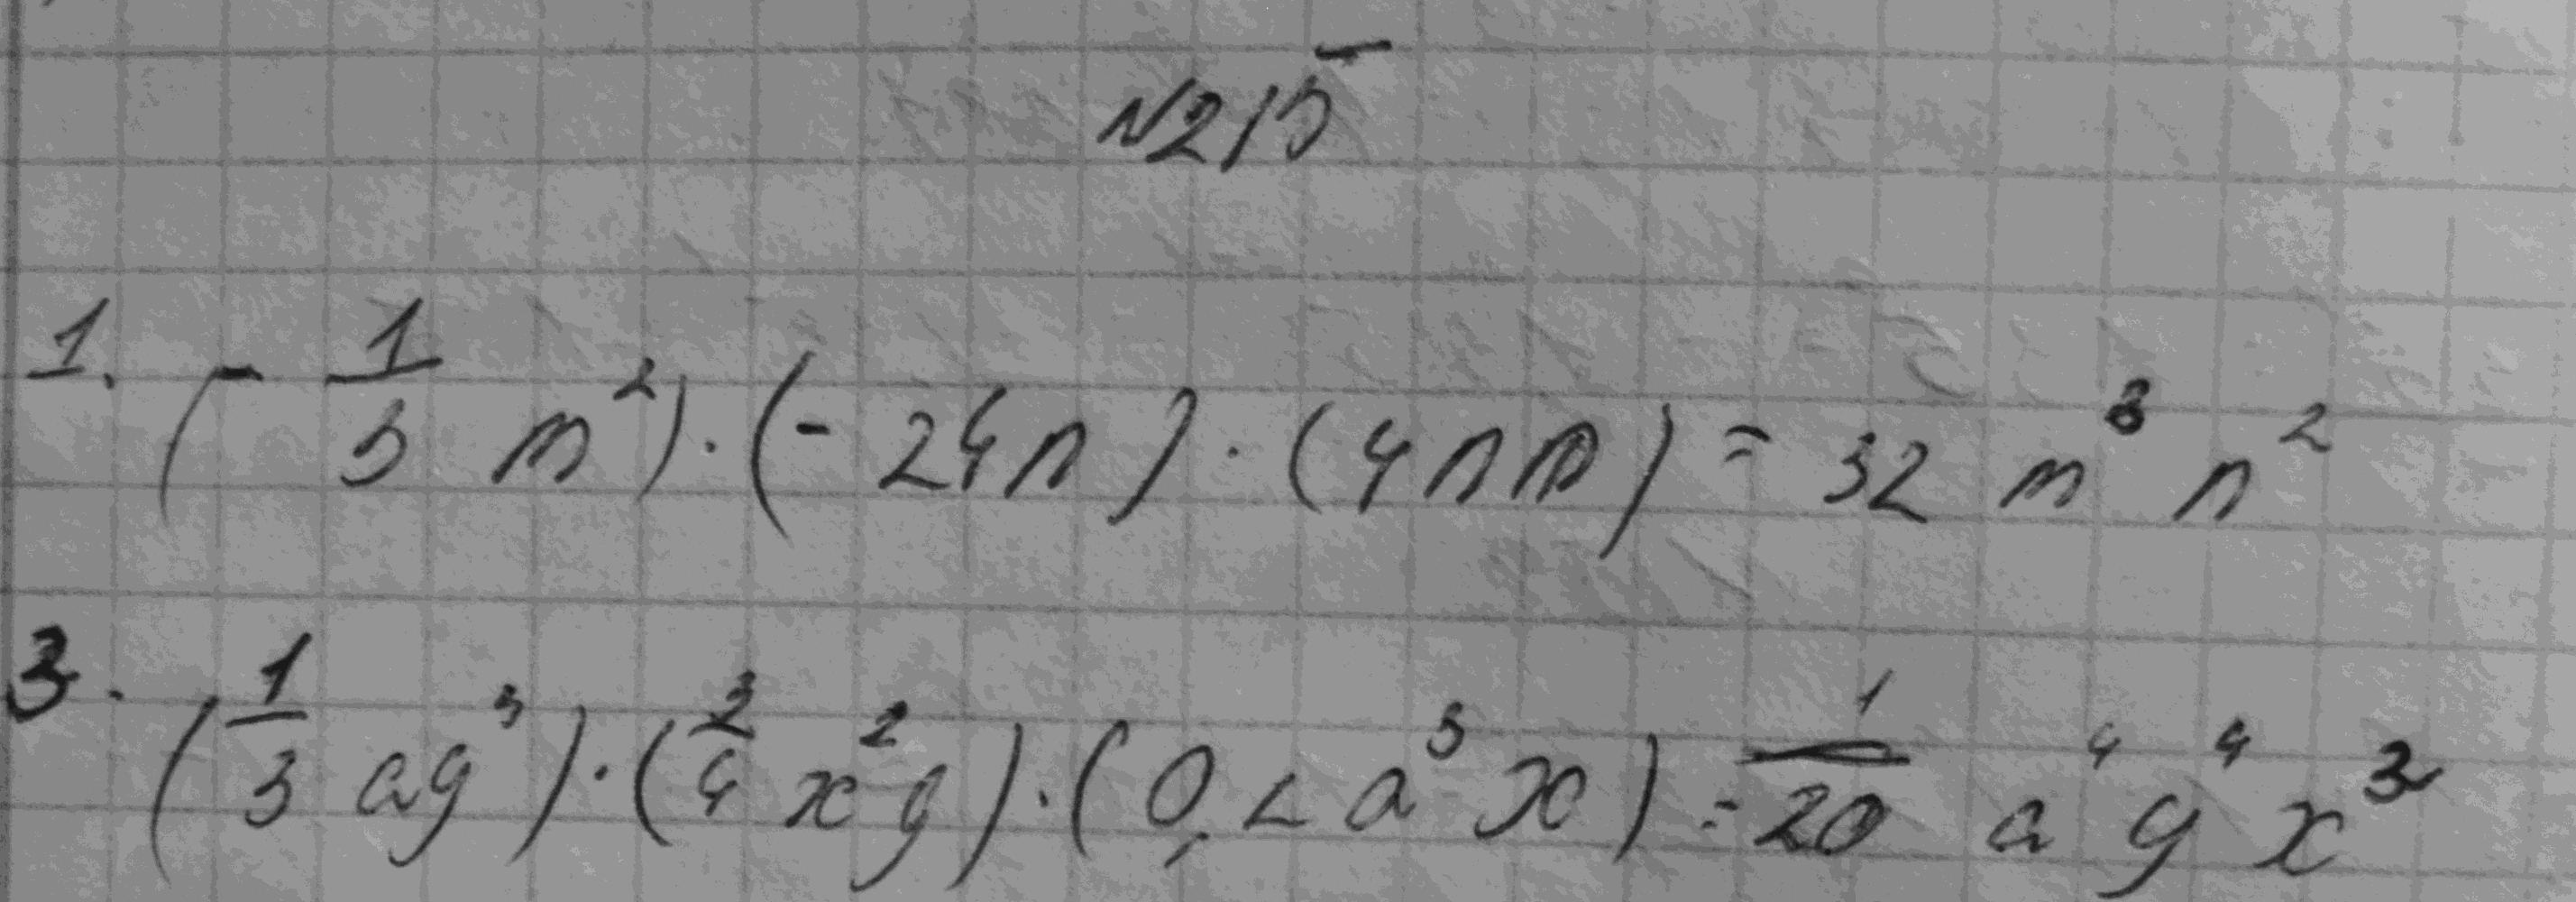 №215
1. (- 1/3 m²) · (- 24n) · (4nm) = 32 m³ n²
3. (1/3 ay³) · (3/4 x²y) · (0,2 a³x) = 1/20 a⁴ y⁴ x³